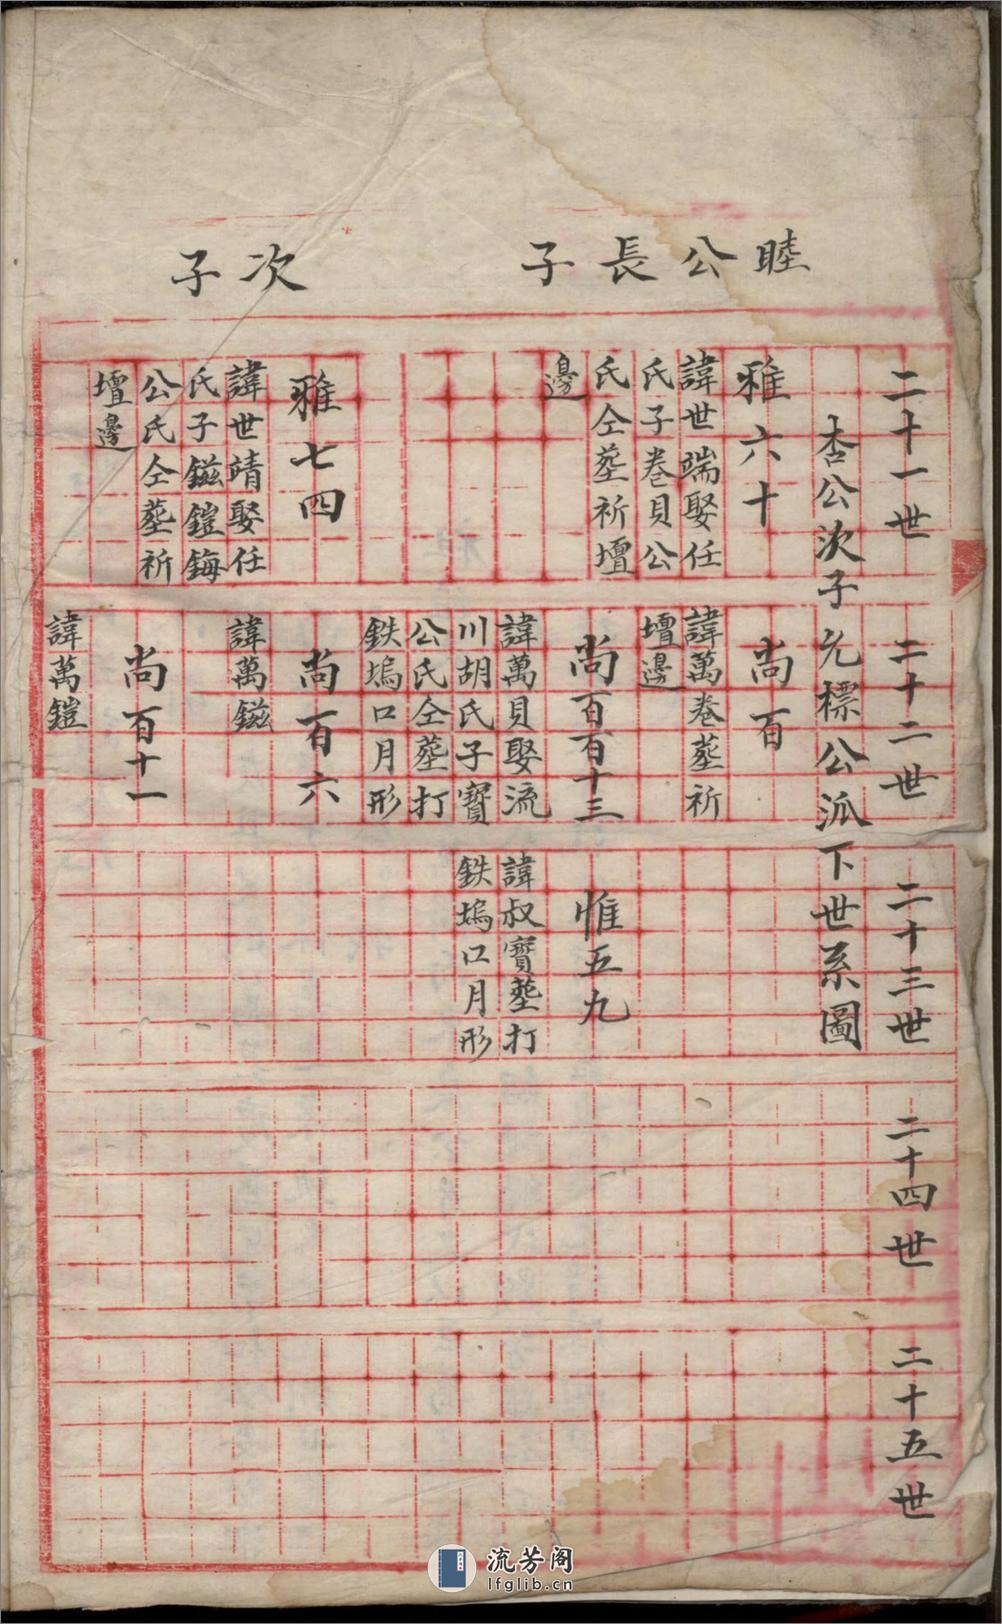 睦公長子
次子
二十一世
二十二世
二十三世
二十四世
二十五世
杏公次子允標公派下世系圖
雅六十
諱世端娶任
氏子卷貝公
氏仝塟祈壇
邊
雅七四
諱世靖娶任
氏子鎡鎧鋂
公氏仝塟祈
壇邊
尚百
諱萬卷塟祈
壇邊
尚百百十三
諱萬貝娶流
川胡氏子寶
公氏仝塟打
鉄塢口月形
尚百六
諱萬鎡
尚百十一
諱萬鎧
惟五九
諱叔寶塟打
鉄塢口月形
流芳阁
lfglib.cn